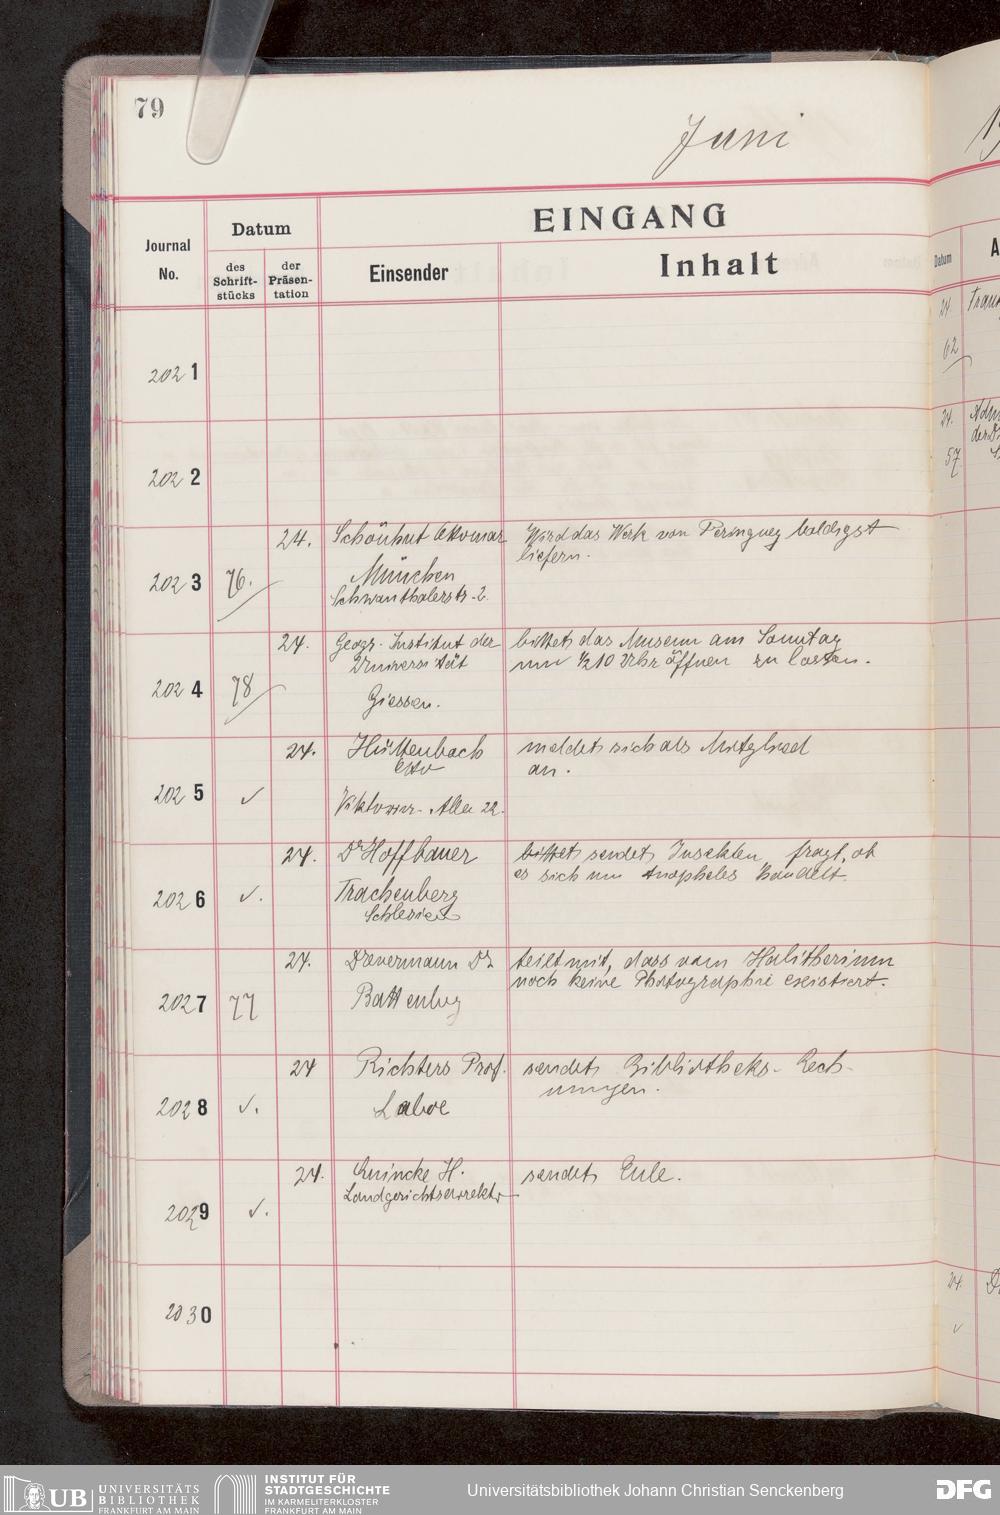 79
Juni
EINGANG
Journal No.
Datum
des Schrift-stücks
der Präsen-tation
Einsender
Inhalt
Datum
2021
24
62
2022
24.
57
2023
76.
24.
Schönhut Ottomar
München
Schwanthalerstr. 2
Wird das Werk von Peringuey baldigst
liefern.
2024
78
24.
Geogr. Institut der
Universität
Giessen.
bittet das Museum am Sonntag
um ½10 Uhr öffnen zu lassen.
2025
✓
24.
Hüttenbach
Otto
Viktoria-Allee 22.
meldet sich als Mitglied
an.
2026
✓.
24.
Dr Hoffbauer
Trachenberg
Schlesien
bittet sendet Insekten, fragt, ob
es sich um Anopheles handelt.
2027
77
24.
Daevermann Dr
teilt mit, dass vom Halitherium
noch keine Photographie existiert.
2028
✓.
24
Richters Prof.
Laboe
sendet Bibliotheks-Rech-
nungen.
2029
✓.
24.
Quincke H.
Landgerichtsdirektor
sendet Eule.
2030
24.
✓
UB UNIVERSITÄTS
BIBLIOTHEK
FRANKFURT AM MAIN
INSTITUT FÜR
STADTGESCHICHTE
IM KARMELITERKLOSTER
FRANKFURT AM MAIN
Universitätsbibliothek Johann Christian Senckenberg
DFG